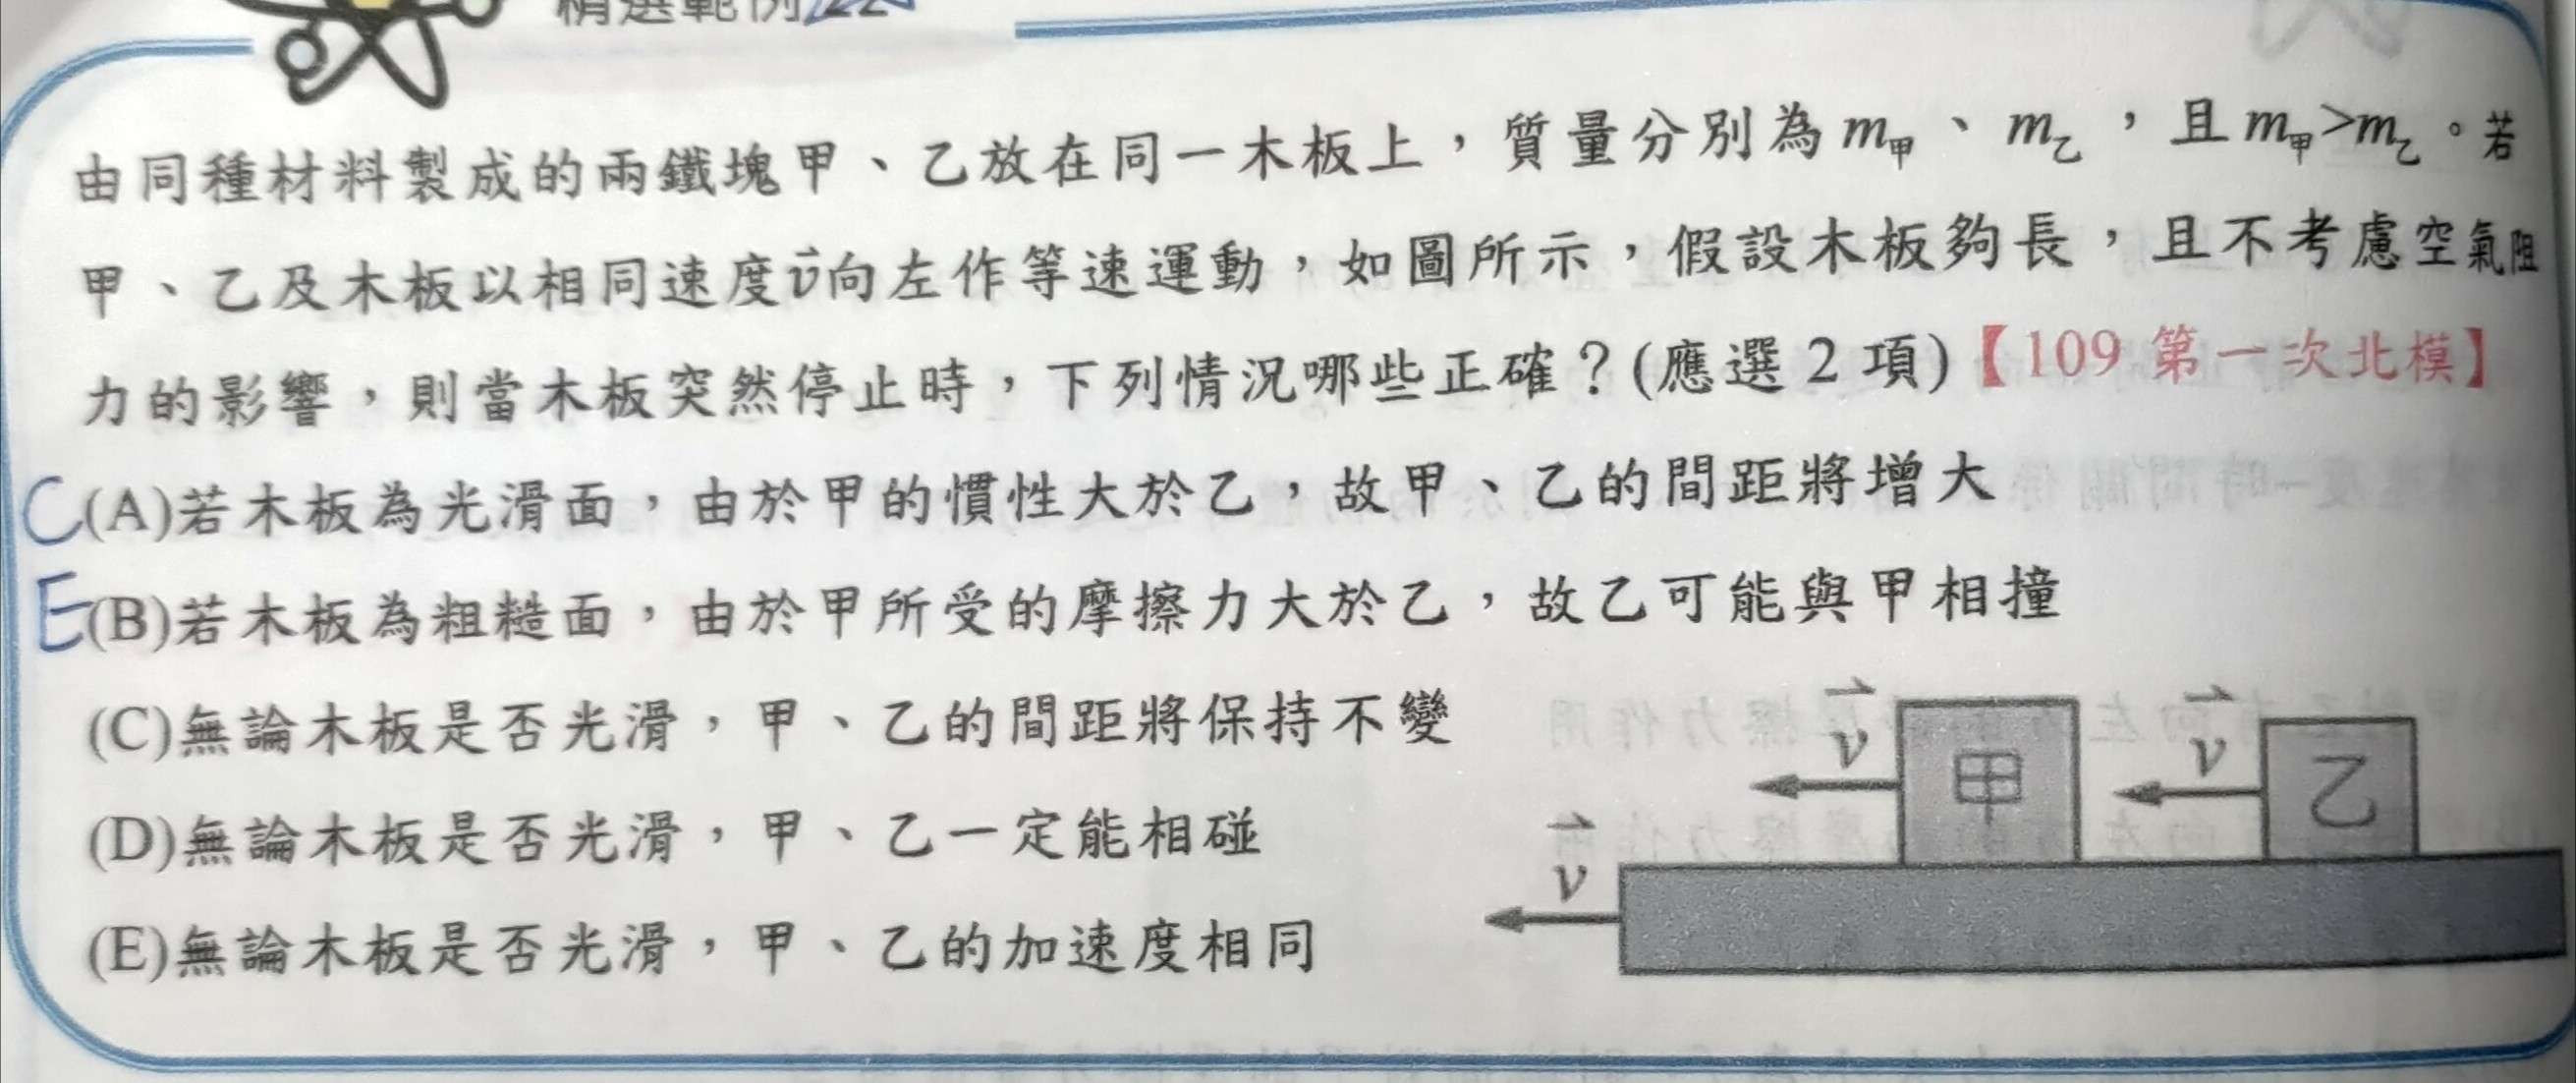 精選範例22
由同種材料製成的兩鐵塊甲、乙放在同一木板上,質量分別為m甲、m乙,且m甲>m乙。若
甲、乙及木板以相同速度v⃗向左作等速運動,如圖所示,假設木板夠長,且不考慮空氣阻
力的影響,則當木板突然停止時,下列情況哪些正確?(應選2項)【109第一次北模】
C(A)若木板為光滑面,由於甲的慣性大於乙,故甲、乙的間距將增大
E(B)若木板為粗糙面,由於甲所受的摩擦力大於乙,故乙可能與甲相撞
(C)無論木板是否光滑,甲、乙的間距將保持不變
(D)無論木板是否光滑,甲、乙一定能相碰
(E)無論木板是否光滑,甲、乙的加速度相同
v⃗
甲
v⃗
乙
v⃗